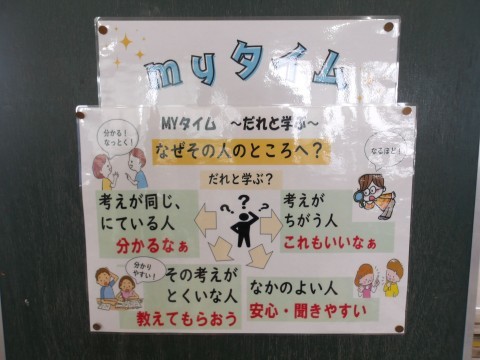 myタイム
MYタイム ～だれと学ぶ～
なぜその人のところへ？
分かる！
なっとく！
なるほど！
だれと学ぶ？
考えが同じ、
にている人
分かるなぁ
考えが
ちがう人
これもいいなぁ
分かり
やすい！
その考えが
とくいな人
教えてもらおう
なかのよい人
安心・聞きやすい